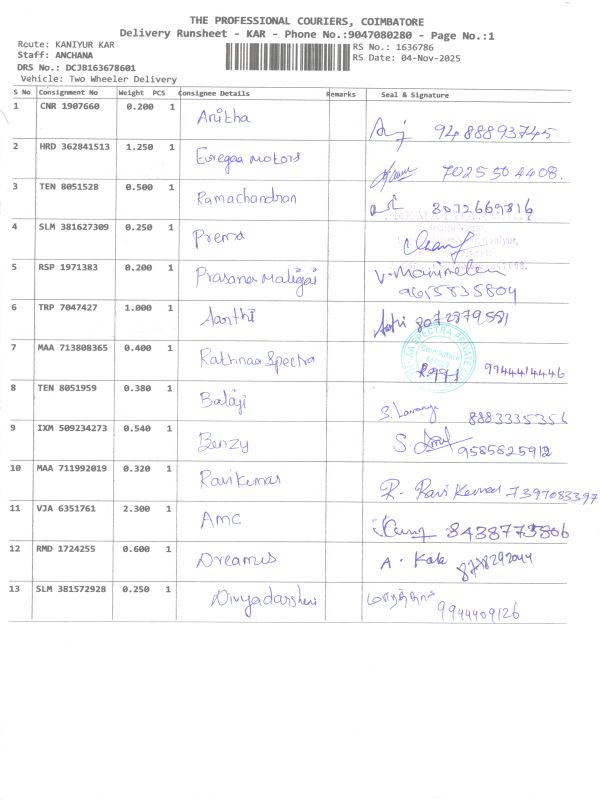 THE PROFESSIONAL COURIERS, COIMBATORE
Delivery Runsheet - KAR - Phone No.:9047080280 - Page No.:1
Route: KANIYUR KAR
RS No.: 1636786
Staff: ANCHANA
RS Date: 04-Nov-2025
DRS No.: DCJB163678601
Vehicle: Two Wheeler Delivery
S No Consignment No Weight PCS Consignee Details Remarks Seal & Signature
1 CNR 1907660 0.200 1 Anitha 9488893745
2 HRD 362841513 1.250 1 Euregaa Motors 7025504408.
3 TEN 8051528 0.500 1 Ramachandran 8072669816
4 SLM 381627309 0.250 1 Prema
Kaniyur,
5 RSP 1971383 0.200 1 Prasanna Maligai
9615835804
6 TRP 7047427 1.000 1 Aarthi 8072879581
7 MAA 713808365 0.400 1 Rathnaa Spectra 9944414446
Coimbatore
8 TEN 8051959 0.380 1 Balaji S. Lavanya 8883335356
9 IXM 509234273 0.540 1 Benzy 9585825912
10 MAA 711992019 0.320 1 Ravikumar R. Ravi Kumar 7397083397
11 VJA 6351761 2.300 1 AMC 8438773806
12 RMD 1724255 0.600 1 Dreams A. Kala 8778292044
13 SLM 381572928 0.250 1 Divyadarshini
9944409126